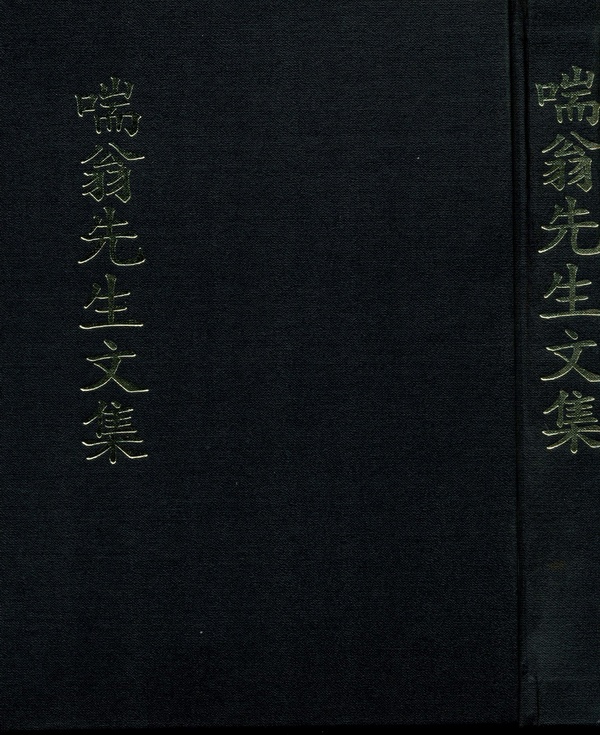 喘翁先生文集
喘翁先生文集